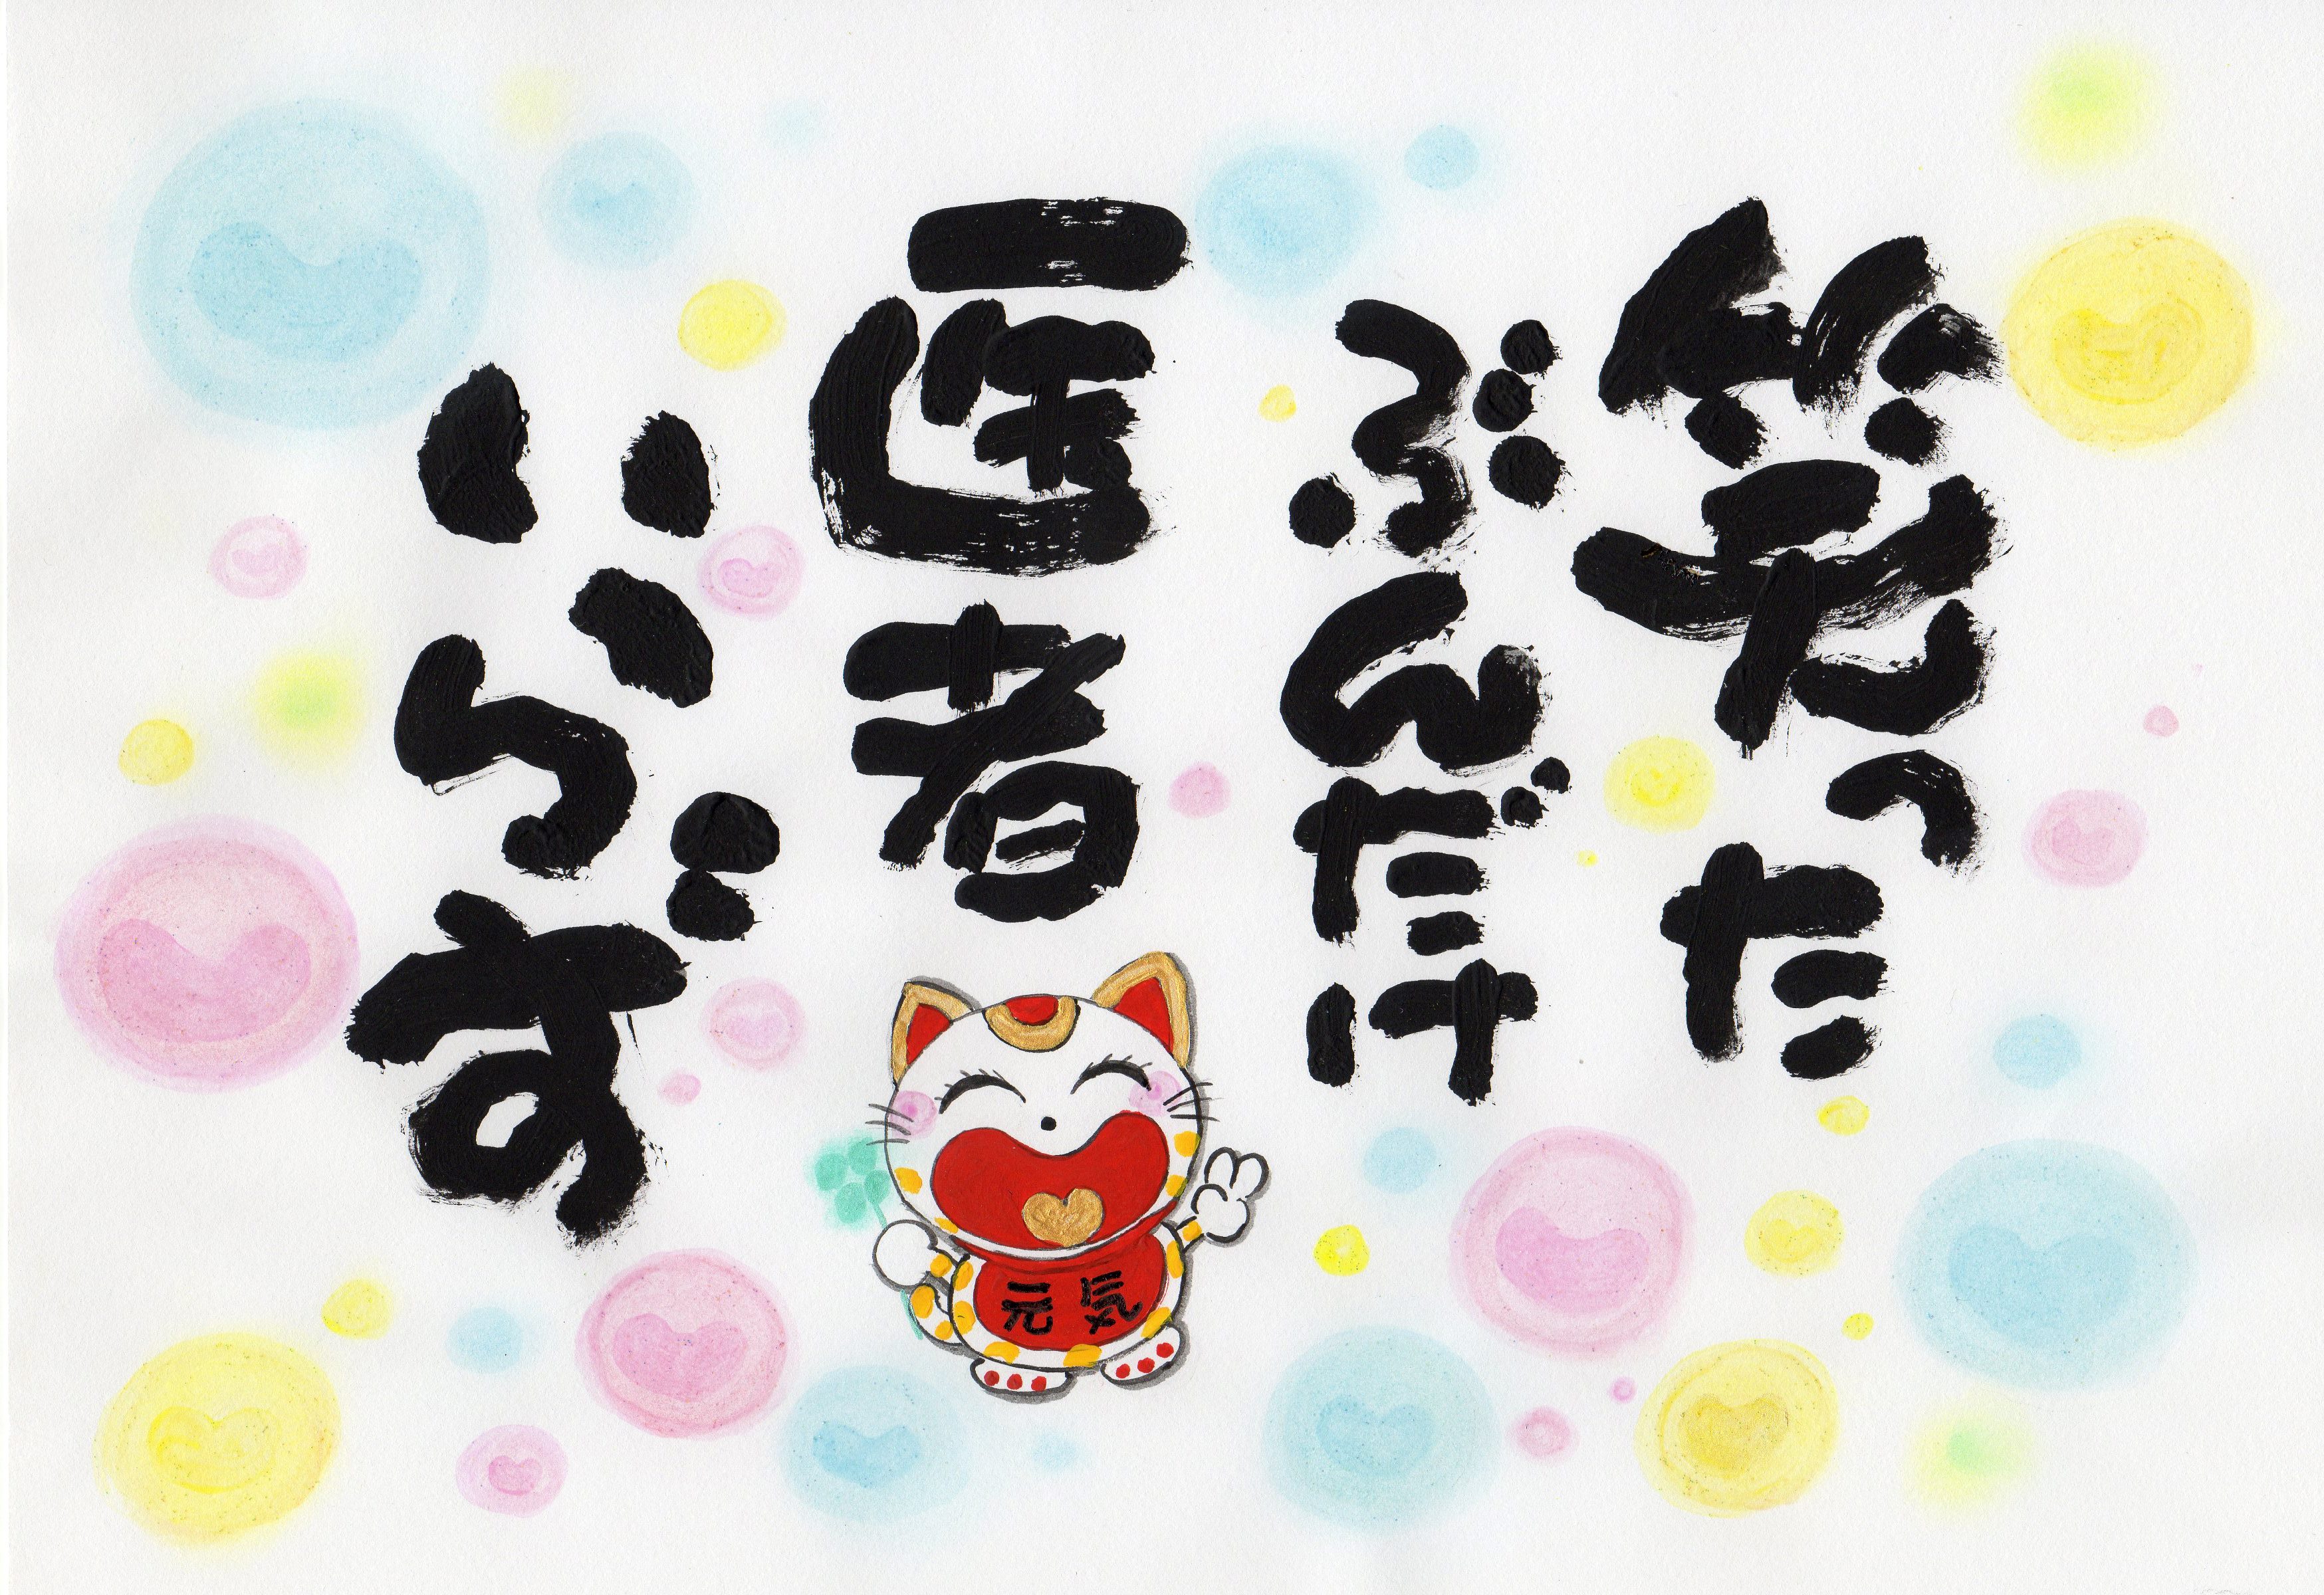 笑った
ぶんだけ
医者
いらず
元気